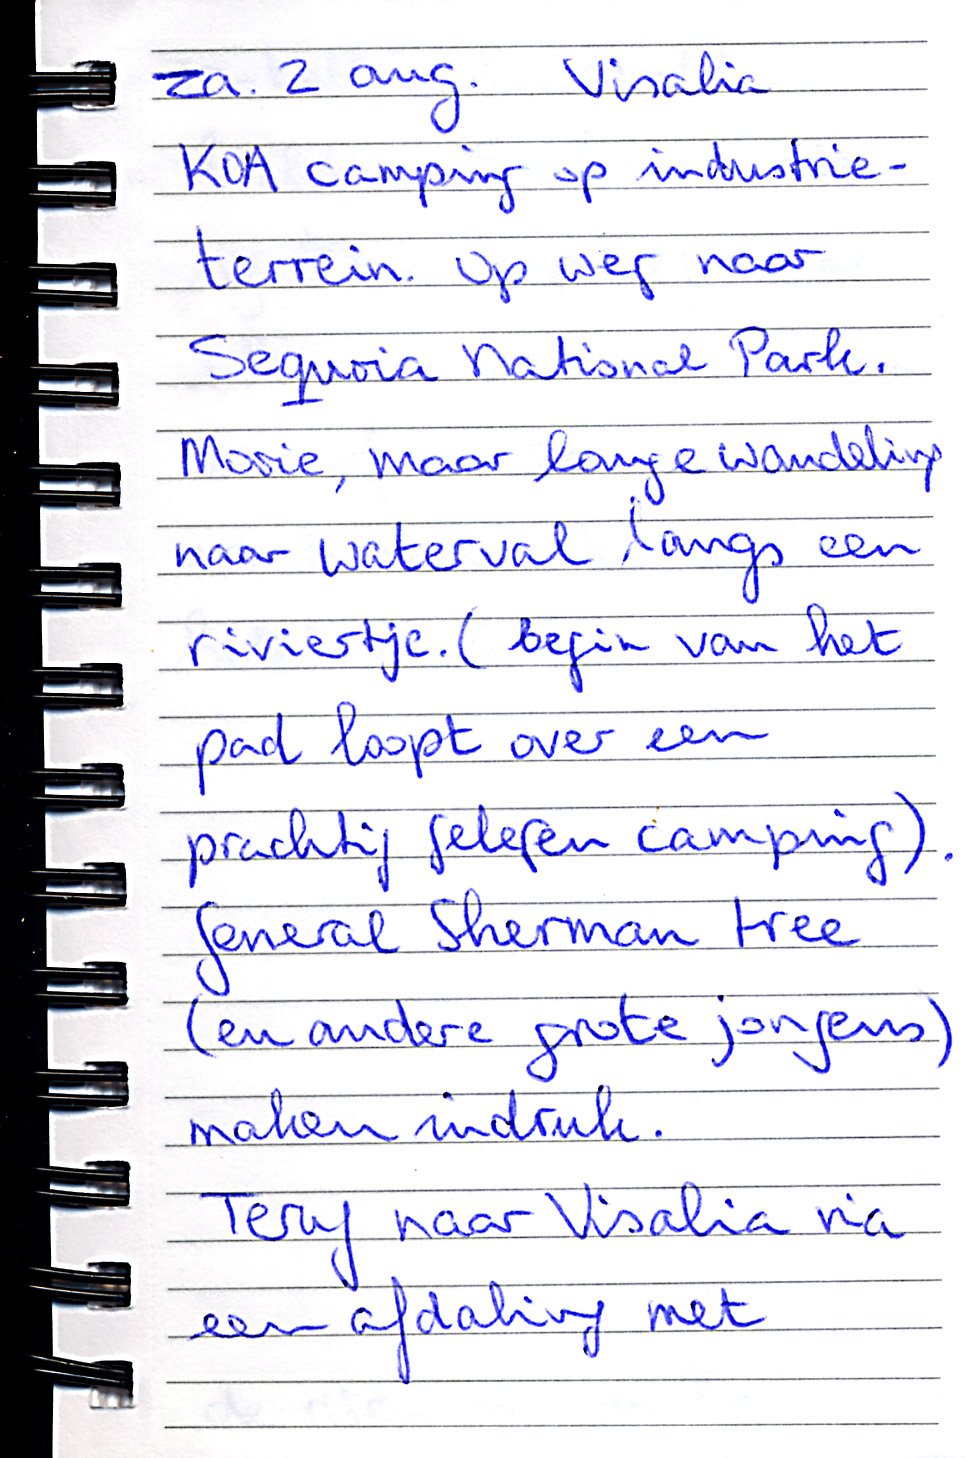 za. 2 aug. Visalia
KOA camping op industrie-
terrein. Op weg naar
Sequoia National Park.
Mooie, maar lange wandeling
naar waterval langs een
riviertje. (begin van het
pad loopt over een
prachtig gelegen camping).
General Sherman tree
(en andere grote jongens)
maken indruk.
Terug naar Visalia via
een afdaling met